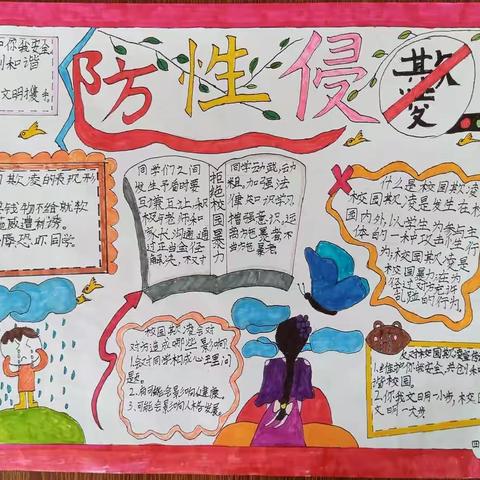 你我安全
和谐
文明携手
防性侵
欺凌
欺凌的表现形
钱物不给就软
施威逼利诱。
恐吓同学
同学们之间
发生矛盾时要
互谅互让,积
极与老师和
家长沟通通
过正当途径
解决,不对
拒绝校园暴力
同学动武,动
粗,加强法
律知识学习
增强意识,远
离暴力,不
当施暴者。
什么是校园欺凌
校园欺凌是发生在校
园内外,以学生为参与主
体的一种攻击性行
为,校园欺凌是
校园暴力
行为。
校园欺凌会对
对方造成哪些影响
1.会对同学构成心里问
题。
2.有可能会影响健康。
3.可能会影响人格发展。
反对校园欺凌宣传
1.维护你我安全,共创和
谐校园。
2.你我文明一小步,校园
文明一大步